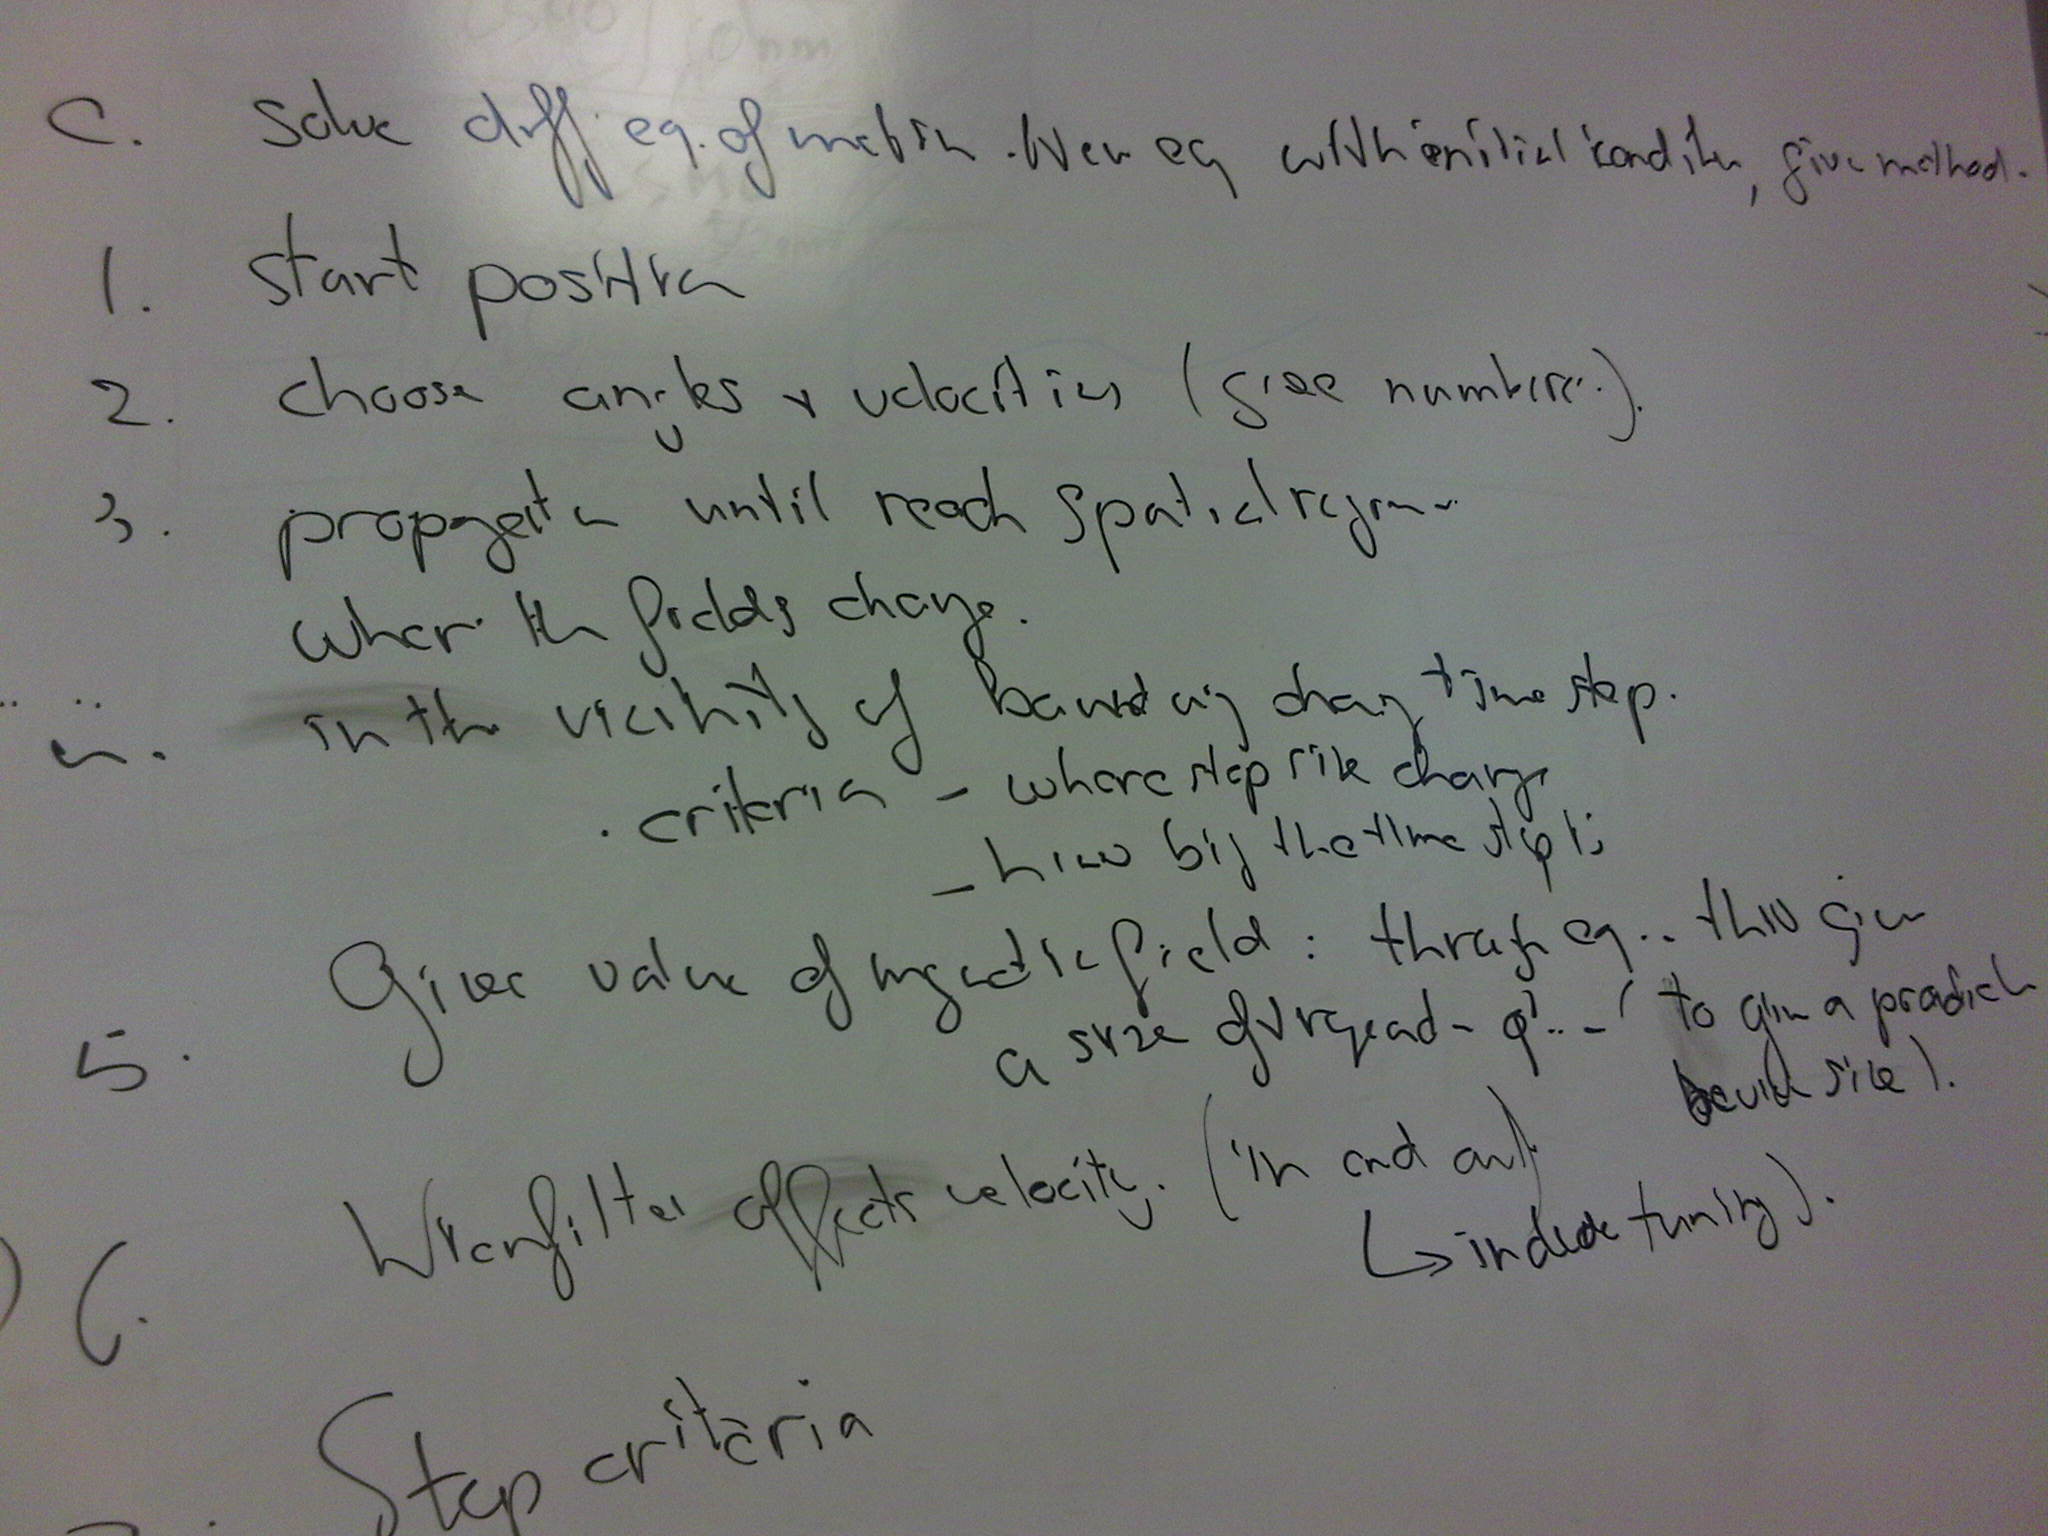 C. Solve diff. eq. of motion. eq with initial condition, give method.
1. Start position
2. choose angles + velocities (give numbers).
3. propagate until reach spatial region
where the fields change.
in the vicinity of boundary change time step.
. criteria - where step size change
- how big the time step is
5. Given value of magnetic field: through eq... this give
a size of to give a
size).
6. Wienfilter affects velocity. (in and out)
↳ include tuning).
Step criteria